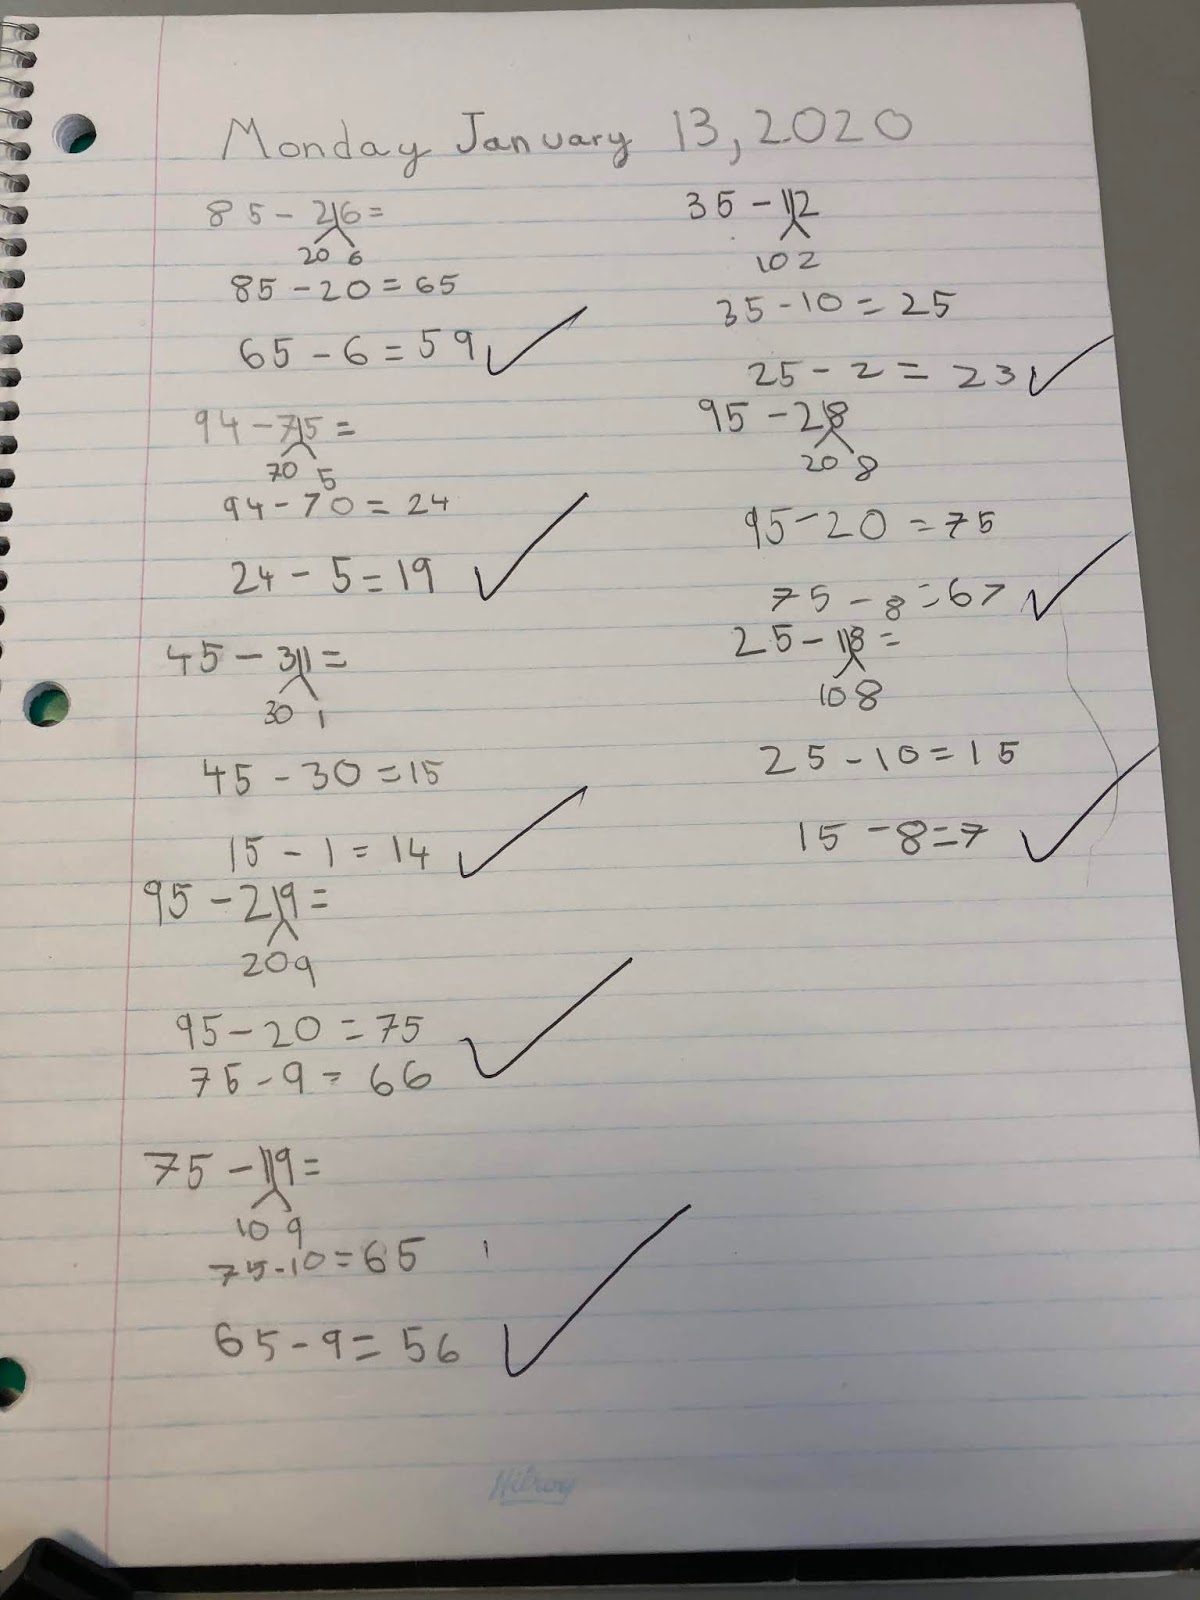 Monday January 13, 2020
85 - 26 =
20 6
85 - 20 = 65
65 - 6 = 59
94 - 75 =
70 5
94 - 70 = 24
24 - 5 = 19
45 - 31 =
30 1
45 - 30 = 15
15 - 1 = 14
95 - 29 =
20 9
95 - 20 = 75
75 - 9 = 66
75 - 19 =
10 9
75 - 10 = 65
65 - 9 = 56
35 - 12
10 2
35 - 10 = 25
25 - 2 = 23
95 - 28
20 8
95 - 20 = 75
75 - 8 = 67
25 - 18 =
10 8
25 - 10 = 15
15 - 8 = 7
Hilroy